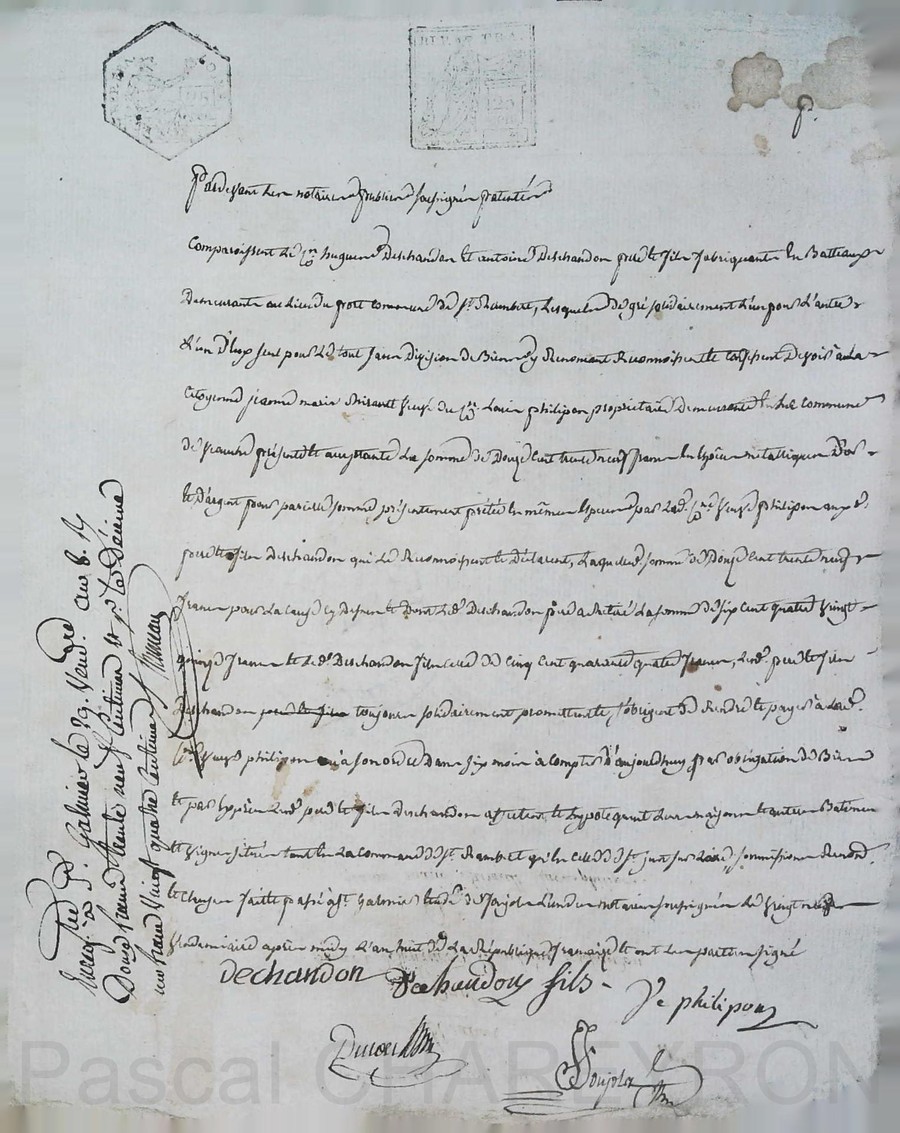 Pardevant Les notaires publics soussignés patentés
Comparoissent Les Cns hugues Dechandon et antoine Dechandon pere et fils fabriquants En Batteaux
Demeurants au Lieu du port commune de St. Rambert, Lesquels de gré solidairement L'un pour L'autre
& L'un D'Eux seul pour Le tout sans Division de Biens ny Renoncant Reconnoissent et Confessent Devoir à La
Citoyenne jeanne marie veuve du Cn. Louis philipon propriétaire demeurante En La commune
de présente et acceptante La somme de Douze Cent trente neuf francs En Espèces métalliques D'or
et D'argent pour pareille somme présentement prêtée En mêmes Espèces par Lad. Cne veuve philipon auxd.
pere et fils Deschandon qui Le Reconnoissent et Déclarent, Laquelle somme de Douze Cent trente neuf
francs pour La Cause cy Dessus et Dont Led. Deschandon père a Retiré La somme de six Cent quatre vingt
quinze francs et Led. Deschandon fils celle de Cinq Cent quarante quatre francs, Lesd. pere et fils
Deschandon pere et fils toujours solidairement promettent et s'obligent de Rendre et payer à Lad.
Cne. veuve philipon ou à son ordre Dans six mois à Compter d'aujourd'huy par obligation de Biens
et par Exprès Lesd. pere et fils Deschandon affectent et hypotequent Leurs maisons et autres Batiments
et vignes situés tant En La Commune de St. Rambert qu'En celle de St. just sur Loire soumissions Renonc.
et Clauses faitte et passé à St. Galmier Etude de L'un des notaires soussignés Le vingt neuf
Vendemiaire après midy L'an huit de La République françaize et ont Les parties signé
dechandon Dechandon fils Ve philipon
Pascal CHAREYRON
Enregistré à St. Galmier le 29. Vend. an 8. R
Douze francs trente neuf Centimes et pr le Dixieme
un franc vingt quatre Centimes